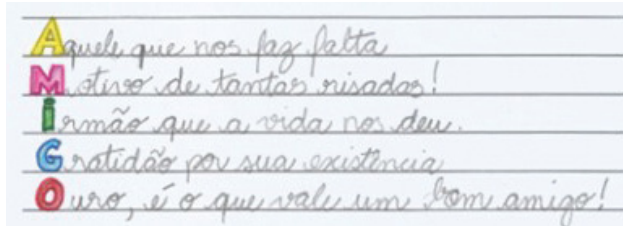 Aquele que nos faz falta
Motivo de tantas risadas!
Irmão que a vida nos deu.
Gratidão por sua existência
Ouro, é o que vale um bom amigo!